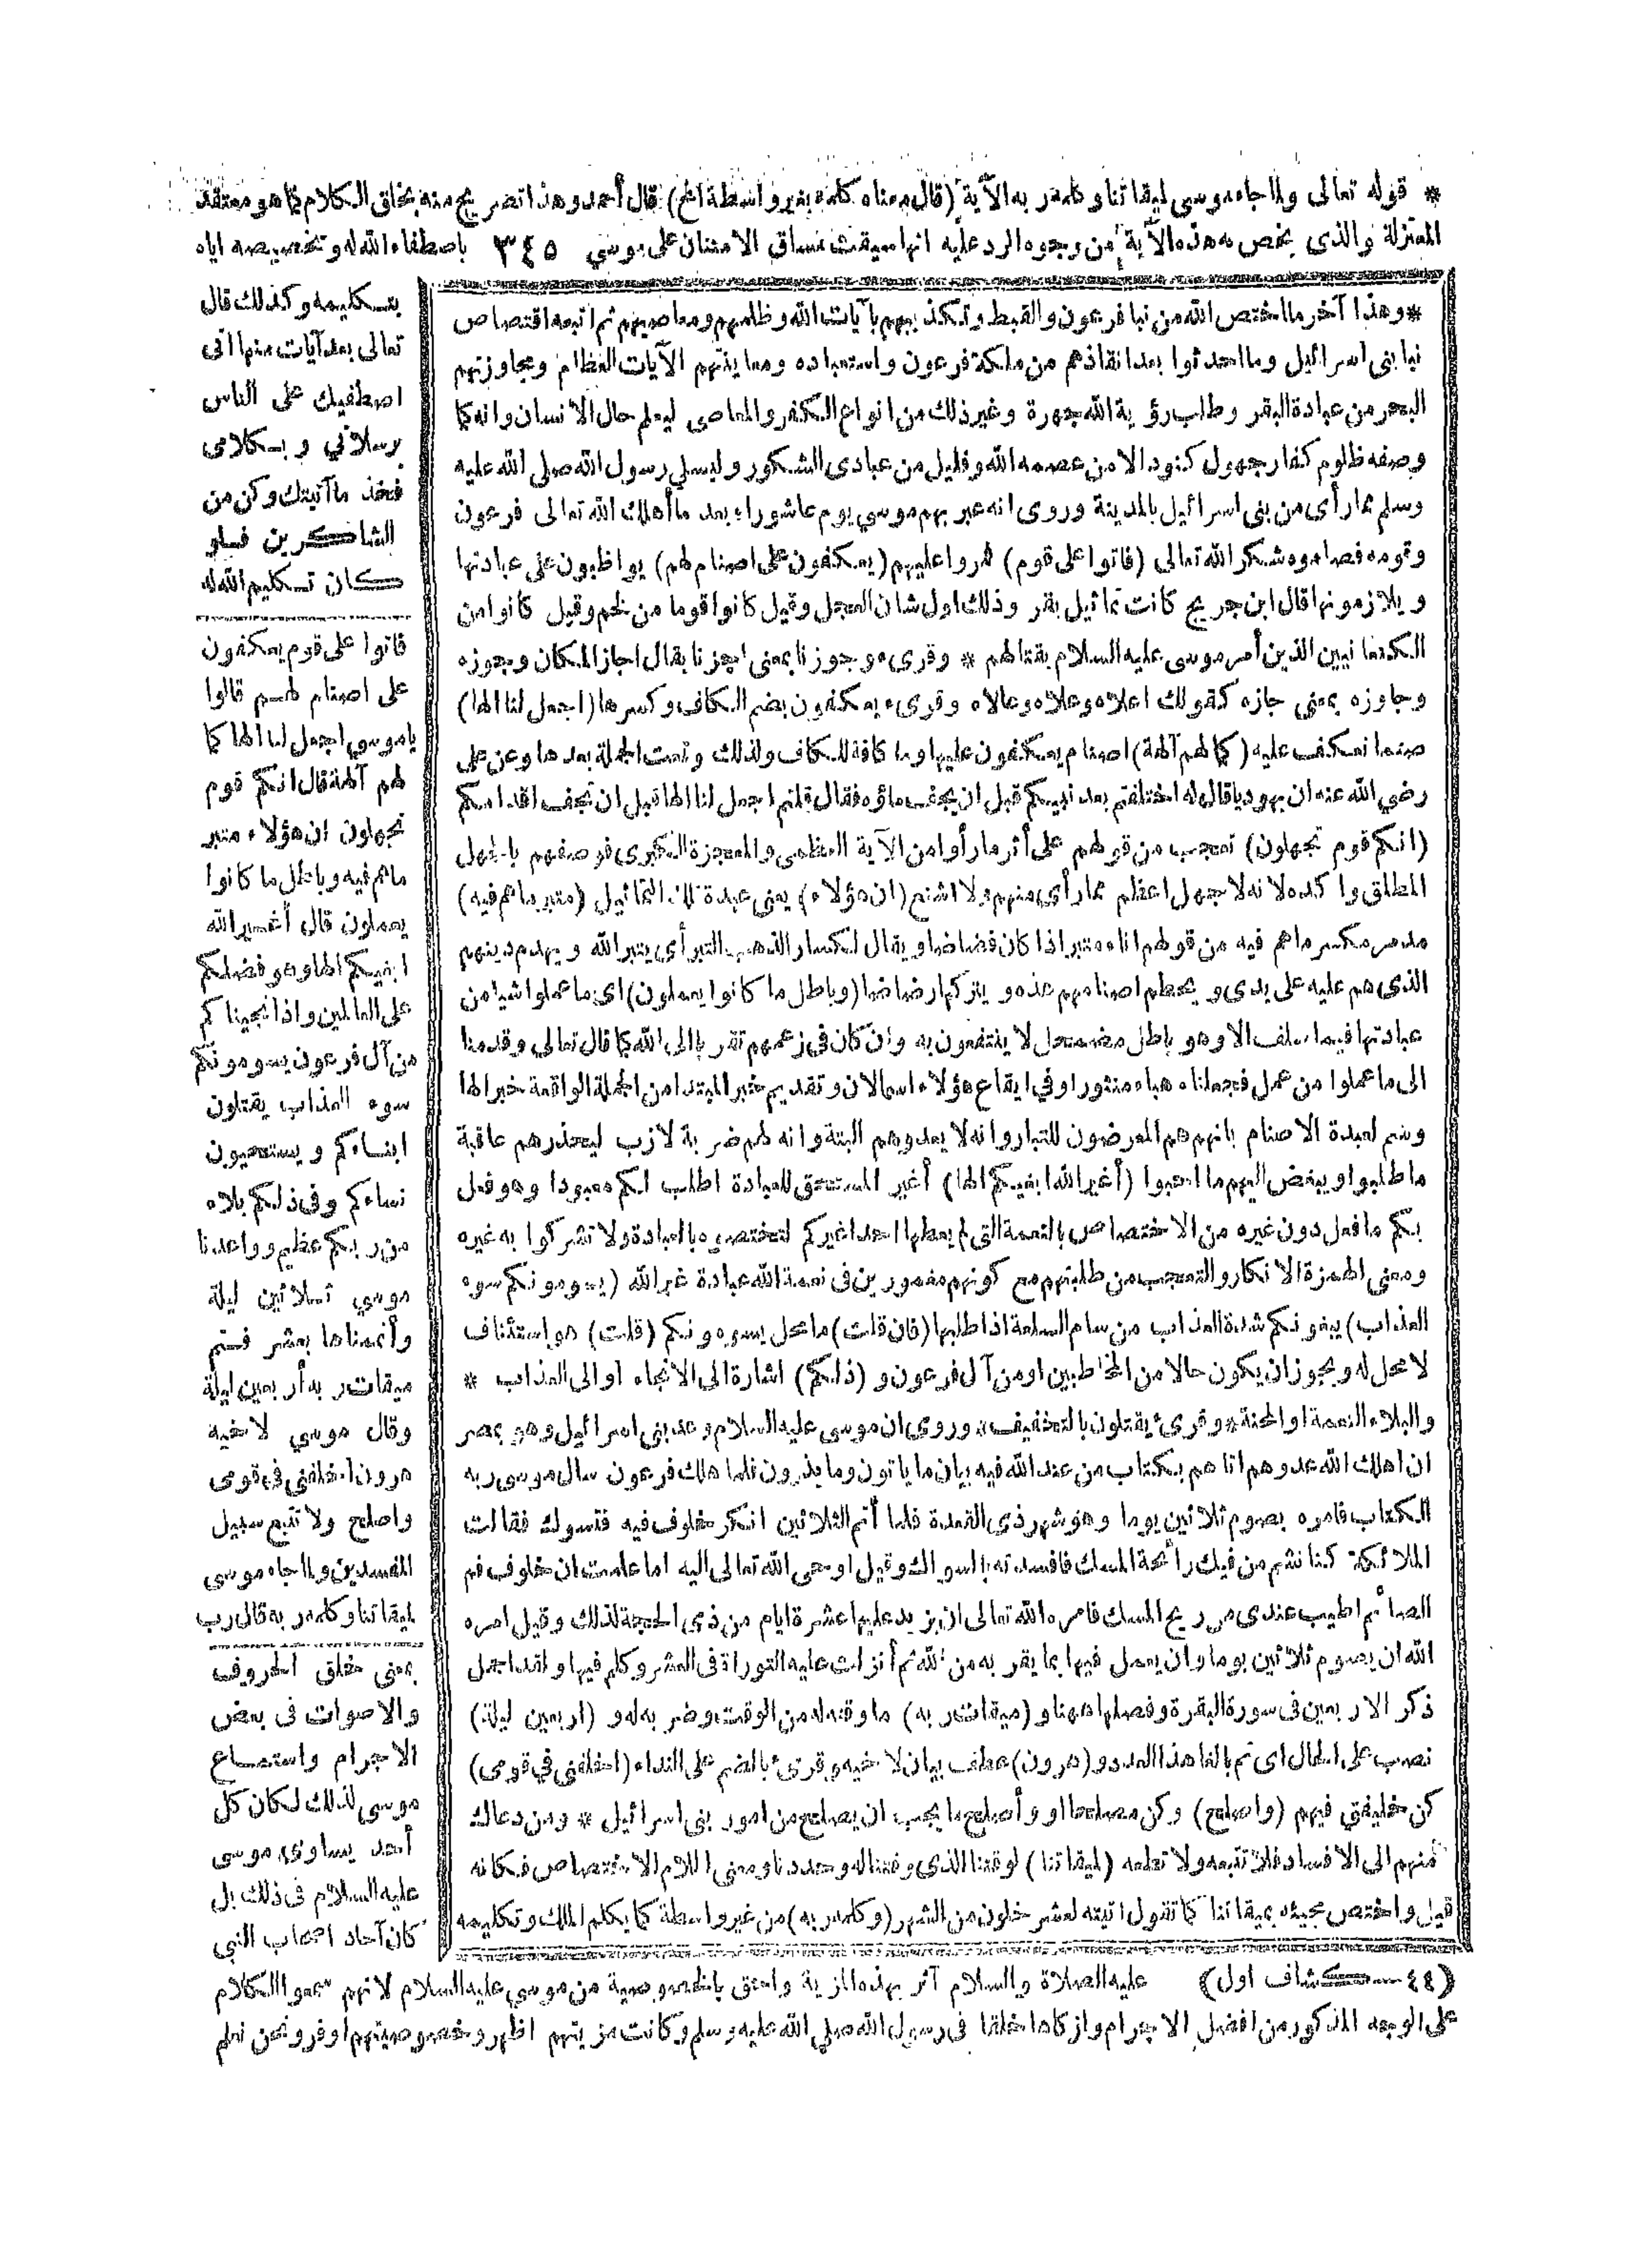 * قوله تعالى ولما جاء موسى لميقاتنا وكلمه ربه الآية (قال معناه كلمه بغير واسطة الخ) قال أحمد وهذا تصريح منه بخلق الكلام كما هو معتقد
المعتزلة والذى يخص به هذه الآية من وجوه الرد عليه انها سيقت مساق الامتنان على موسى ٣٤٥ باصطفاء الله له وتخصيصه اياه
بتكليمه وكذلك قال
تعالى بعد آيات منها انى
اصطفيتك على الناس
برسالاتي وبكلامى
فخذ ما آتيتك وكن من
الشاكرين فلو
كان تكليم الله له
* وهذا آخر ما اختص الله من نبا فرعون والقبط وتكذيبهم بآيات الله وظلمهم ومعاصيهم ثم اتبعه اقتصاص
نبا بنى اسرائيل وما احدثوا بعد انقاذهم من ملكة فرعون واستعباده ومعاينتهم الآيات العظام ومجاوزتهم
البحر من عبادة البقر وطلب رؤية الله جهرة وغير ذلك من انواع الكفر والمعاصى ليعلم حال الانسان وانه كما
وصفه ظلوم كفار جهول كنود الا من عصمه الله وقليل من عبادى الشكور وليسلى رسول الله صلى الله عليه
وسلم مما رأى من بنى اسرائيل بالمدينة وروى انه عبر بهم موسي يوم عاشوراء بعد ما أهلك الله تعالى فرعون
وقومه فصاموه شكر الله تعالى (فاتوا على قوم) فمروا عليهم (يعكفون على اصنام لهم) يواظبون على عبادتها
ويلازمونها قال ابن جريج كانت تماثيل بقر وذلك اول شان العجل وقيل كانوا قوما من لخم وقيل كانوا من
الكنعانيين الذين أمر موسى عليه السلام بقتالهم * وقرىء وجوزنا بمعنى اجزنا يقال اجاز المكان وجوزه
وجاوزه بمعني جازه كقولك اعلاه وعلاه وعالاه وقرىء يعكفون بضم الكاف وكسرها (اجعل لنا الها)
صنما نعكف عليه (كما لهم آلهة) اصنام يعكفون عليها وما كافة للكاف ولذلك وقعت الجملة بعدها وعن على
رضي الله عنه ان يهوديا قال له اختلفتم بعد نبيكم قبل ان يجف ماؤه فقال قلتم اجعل لنا الها قبل ان تجف اقدامكم
(انكم قوم تجهلون) تعجب من قولهم على أثر ما رأوا من الآية العظمى والمعجزة الكبرى فوصفهم بالجهل
المطلق واكده لانه لا جهل اعظم مما رأى منهم ولا اشنع (ان هؤلاء) يعنى عبدة تلك التماثيل (متبر ما هم فيه)
مدمر مكسر ما هم فيه من قولهم اناء متبر اذا كان فضاضا ويقال لكسار الذهب التبر أى يتبر الله ويهدم دينهم
الذى هم عليه على يدى ويحطم اصنامهم هذه ويتركها رضاضا (وباطل ما كانوا يعملون) اى ما عملوا شيا من
عبادتها فيما سلف الا وهو باطل مضمحل لا ينتفعون به وان كان فى زعمهم تقربا الى الله كما قال تعالى وقدمنا
الى ما عملوا من عمل فجعلناه هباء منثورا وفي ايقاع هؤلاء اسما لان وتقديم خبر المبتدا من الجملة الواقعة خبرا لها
وسم لعبدة الاصنام بانهم هم المعرضون للتبار وانه لا يعدوهم البتة وانه لهم ضربة لازب ليحذرهم عاقبة
ما طلبوا ويبغض اليهم ما احبوا (أغير الله ابغيكم الها) أغير المستحق للعبادة اطلب لكم معبودا وهو فعل
بكم ما فعل دون غيره من الاختصاص بالنعمة التي لم يعطها احدا غيركم لتختصوه بالعبادة ولا تشركوا به غيره
ومعنى الهمزة الانكار والتعجب من طلبتهم مع كونهم مغمورين فى نعمة الله عبادة غير الله (يسومونكم سوء
العذاب) يبغونكم شدة العذاب من سام السلعة اذا طلبها (فان قلت) ما محل يسومونكم (قلت) هو استئناف
لا محل له ويجوز ان يكون حالا من المخاطبين او من آل فرعون و (ذلكم) اشارة الى الانجاء او الى العذاب *
والبلاء النعمة او المحنة * وقرئ يقتلون بالتخفيف * وروى ان موسى عليه السلام وعد بنى اسرائيل وهو بمصر
ان اهلك الله عدوهم اتاهم بكتاب من عند الله فيه بيان ما ياتون وما يذرون فلما هلك فرعون سال موسى ربه
الكتاب فامره بصوم ثلاثين يوما وهو شهر ذي القعدة فلما أتم الثلاثين انكر خلوف فيه فتسوك فقالت
الملائكة كنا نشم من فيك رائحة المسك فافسدته بالسواك وقيل اوحى الله تعالى اليه اما علمت ان خلوف فم
الصائم اطيب عندى من ريح المسك فامره الله تعالى ان يزيد عليها عشرة ايام من ذي الحجة لذلك وقيل امره
الله ان يصوم ثلاثين يوما وان يعمل فيها بما يقربه من الله ثم أنزلت عليه التوراة فى العشر وكلم فيها ولقد اجمل
ذكر الاربعين فى سورة البقرة وفصلها ههنا و (ميقات ربه) ما وقته له من الوقت وضربه له و (اربعين ليلة)
نصب على الحال اى تم بالغا هذا العدد و (هرون) عطف بيان لاخيه وقرئ بالضم على النداء (اخلفنى في قومى)
كن خليفتي فيهم (واصلح) وكن مصلحا او وأصلح ما يجب ان يصلح من امور بنى اسرائيل * ومن دعاك
منهم الى الافساد فلا تتبعه ولا تطعه (لميقاتنا) لوقتنا الذى وقتنا له وحددنا ومعنى اللام الاختصاص فكانه
قيل واختص مجيئه بميقاتنا كما تقول اتيته لعشر خلون من الشهر (وكلمه ربه) من غير واسطة كما يكلم الملك وتكليمه
فاتوا على قوم يعكفون
على اصنام لهم قالوا
ياموسي اجعل لنا الها كما
لهم آلهة قال انكم قوم
تجهلون ان هؤلاء متبر
ما هم فيه وباطل ما كانوا
يعملون قال أغير الله
ابغيكم الها وهو فضلكم
على العالمين واذ انجيناكم
من آل فرعون يسومونكم
سوء العذاب يقتلون
ابناءكم ويستحيون
نساءكم وفى ذلكم بلاء
من ربكم عظيم وواعدنا
موسي ثلاثين ليلة
وأتممناها بعشر فتم
ميقات ربه أربعين ليلة
وقال موسي لاخيه
هرون اخلفنى فى قومى
واصلح ولا تتبع سبيل
المفسدين ولما جاء موسى
لميقاتنا وكلمه ربه قال رب
بمعنى خلق الحروف
والاصوات فى بعض
الاجرام واستماع
موسى لذلك لكان كل
أحد يساوى موسى
عليه السلام فى ذلك بل
كان آحاد اصحاب النبي
(٤٤ ــ كشاف اول) عليه الصلاة والسلام آثر بهذه المزية واحق بالخصوصية من موسي عليه السلام لانهم سمعوا الكلام
على الوجه المذكور من افضل الاجرام وازكاها خلقا فى رسول الله صلي الله عليه وسلم وكانت مزيتهم اظهر وخصوصيتهم اوفر ونحن نعلم